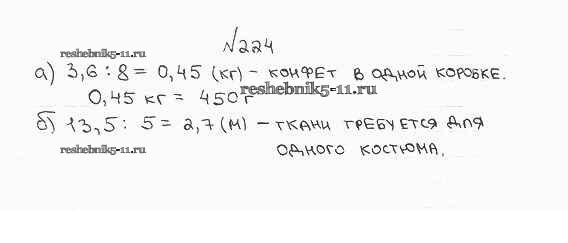 №224
reshebnik5-11.ru
а) 3,6 : 8 = 0,45 (кг) - конфет в одной коробке.
0,45 кг = 450 г
reshebnik5-11.ru
б) 13,5 : 5 = 2,7 (м) - ткани требуется для
одного костюма.
reshebnik5-11.ru